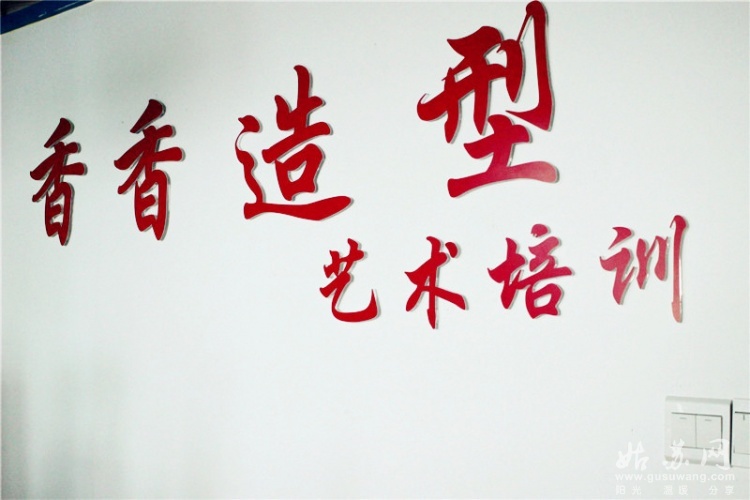 香香造型
艺术培训
姑苏网
www.gusuwang.com
阳光 温度 分享